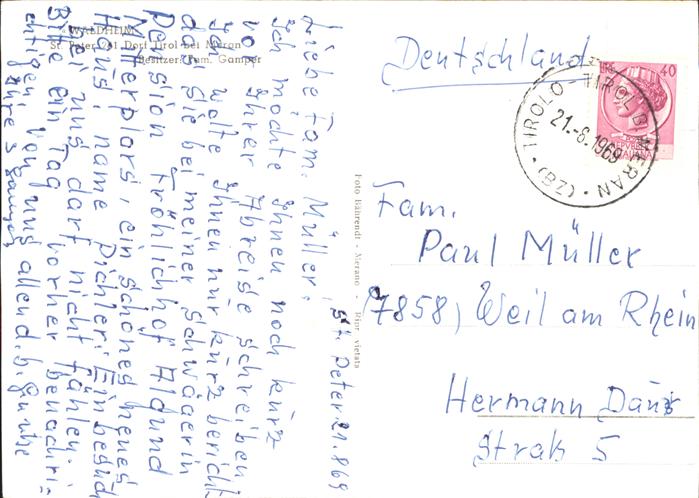 WALDHEIM
St. Peter 241 Dorf Tirol bei Meran
Besitzer: Fam. Gamper
St. Peter 21.869
Liebe Fam. Müller!
Ich möchte Ihnen noch kurz
vor Ihrer Abreise schreiben
Ich wolte Ihnen nur kurz bericht
das sie bei meiner Schwägerin
Pension Fröhlichhof Aldund
Mitterplars, ein schönes neues
Haus, name Pichler! Ein besuch
bei uns darf nicht fählen.
Bitte ein Tag vorher benachri-
chtigen von uns allen d. b. Grüße
Ihre
Foto Bährendt - Merano - Ripr. vietata
Deutschland
40
TIROLO - TIROL B. MERAN
21.-8.1969
(BZ)
ITALIANA
Fam.
Paul Müller
(7858) Weil am Rhein
Hermann Daur
Straß 5